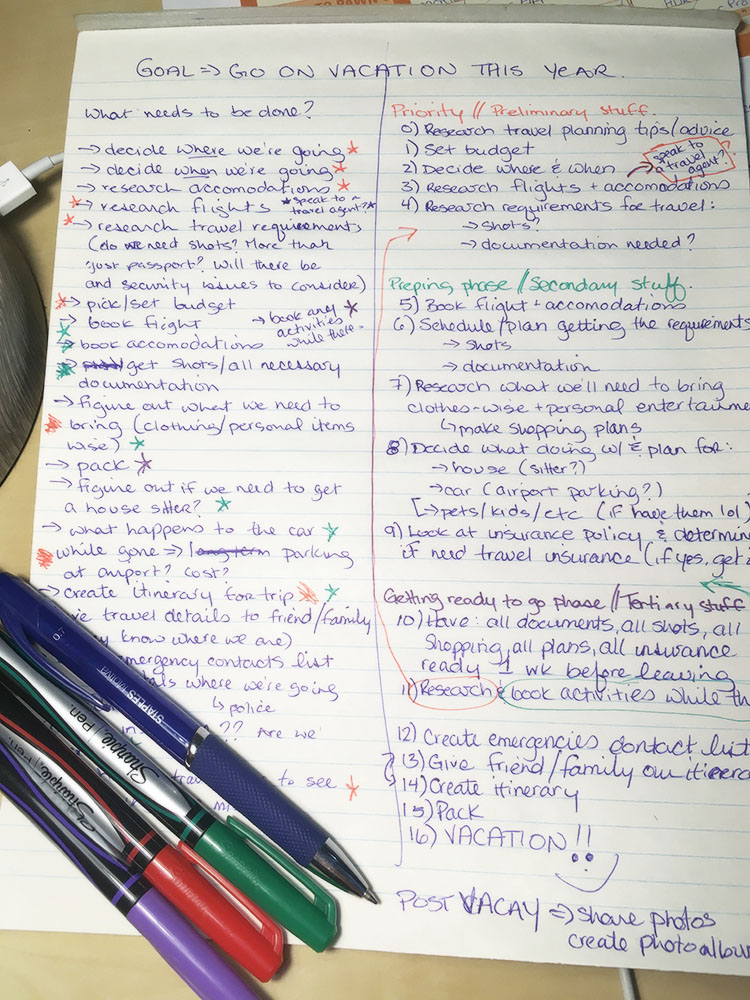 GOAL ⇒ GO ON VACATION THIS YEAR.
What needs to be done?
→ decide where we're going *
→ decide when we're going *
→ research accomodations *
* → research flights *speak to a travel agent?*
* → research travel requirements
(do we need shots? More than
just passport? Will there be
and security issues to consider)
* → pick/set budget
→ book flight
→ book any activities while there. *
* → book accomodations
* → get shots/all necessary
documentation
→ figure out what we need to
* bring (clothing/personal items
wise) *
→ pack *
→ figure out if we need to get
a house sitter? *
→ what happens to the car *
* while gone ⇒ long term parking
at airport? Cost?
→ create itinerary for trip * *
travel details to friend/family
know where we are)
emergency contacts list
where we're going
↳ police
?? Are we
to see *
Priority // Preliminary stuff.
0) Research travel planning tips/advice
1) Set budget
2) Decide where & when
→ speak to
a travel
agent?
3) Research flights + accomodations
4) Research requirements for travel:
→ shots?
→ documentation needed?
Preping phase // Secondary stuff.
5) Book flight + accomodations
6) Schedule/plan getting the requirements
→ shots
→ documentation
7) Research what we'll need to bring
clothes-wise + personal entertainme
↳ make shopping plans
8) Decide what doing w/ & plan for:
→ house (sitter?)
→ car (airport parking?)
[→ pets/kids/etc (if have them lol)
9) Look at insurance policy & determin
if need travel insurance (if yes, get i
Getting ready to go phase // Tertiary stuff
10) Have: all documents, all shots, all
shopping, all plans, all insurance
ready 1 wk before leaving
11) Research & book activities while th
12) Create emergencies contact list
13) Give friend/family our itinera
14) Create itinerary
15) Pack
16) VACATION!!
POST VACAY ⇒ share photos
create photoalbum
STAPLES
0.7
Sharpie. Pen.
Sharpie. Pen.